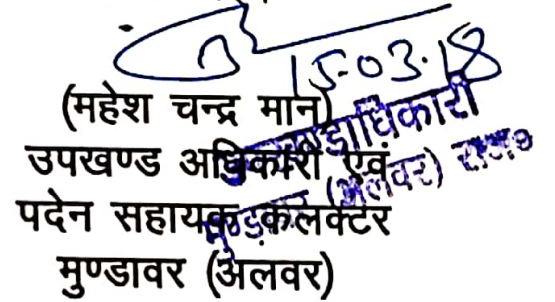 15-03-18
(महेश चन्द्र मान)
उपखण्ड अधिकारी एवं
पदेन सहायक कलक्टर
मुण्डावर (अलवर)
उपखण्डाधिकारी
मुण्डावर (अलवर) राज०